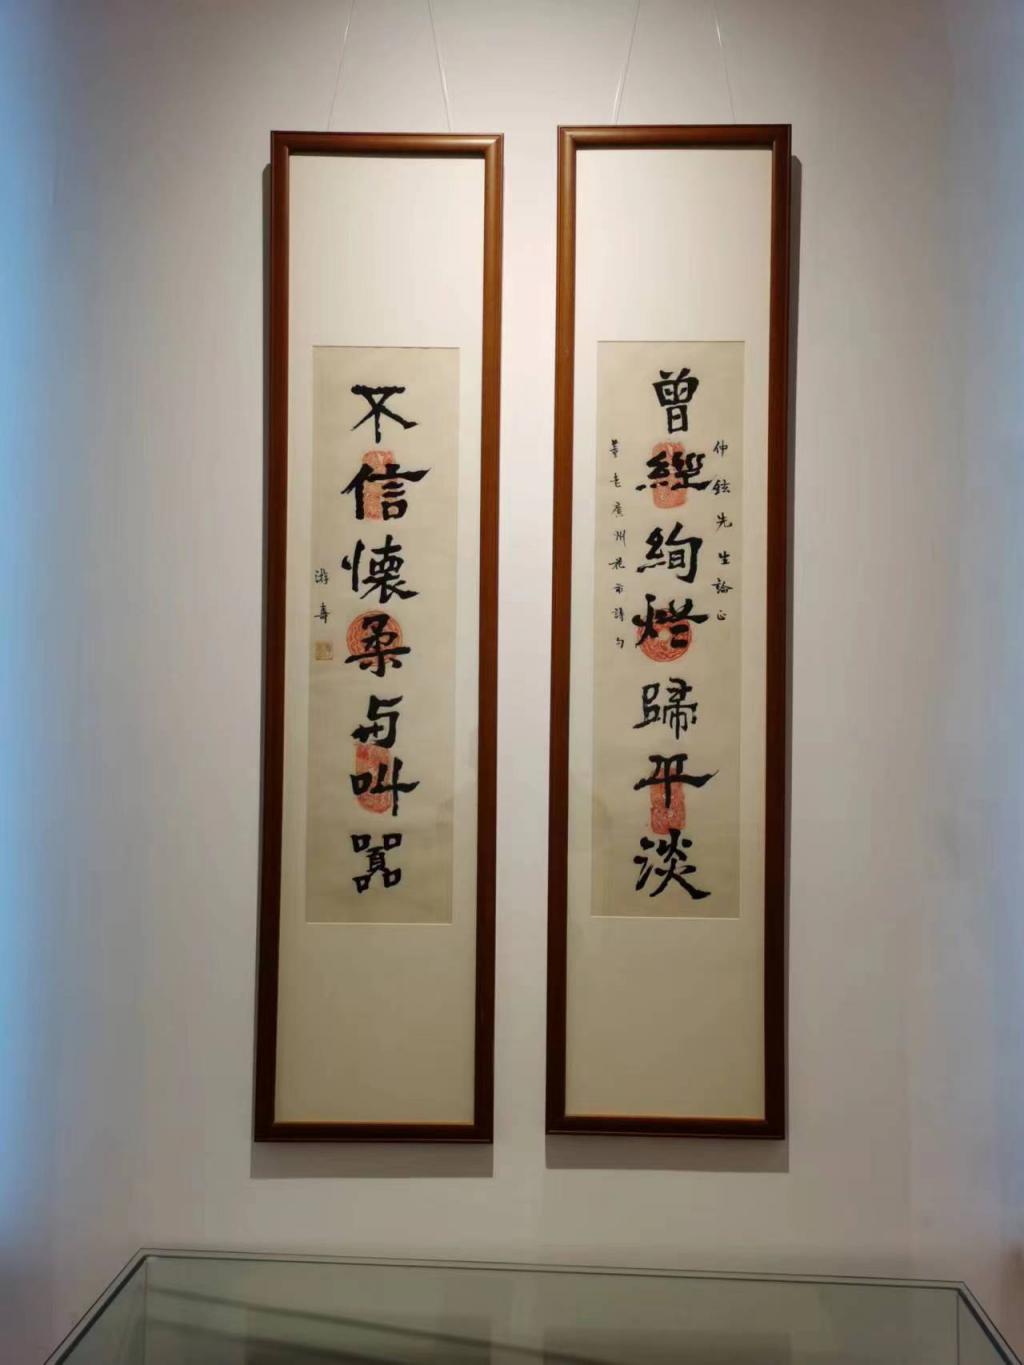 曾經絢爛歸平淡
仲鉉先生論正
董老廣州花市詩句
不信懷柔与叫嚣
游壽